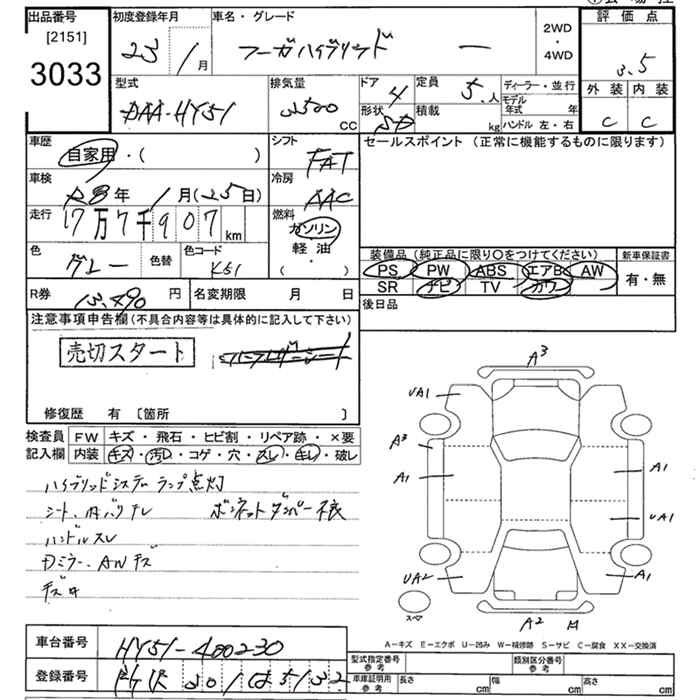 出品番号
[2151]
3033
初度登録年月
23年 1月
車名・グレード
フーガハイブリッド ー
2WD
・
4WD
評価点
3.5
外装 内装
C C
型式
DAA-HY51
排気量
3500
CC
ドア
4
定員
5人
形状
SD
積載
kg
ディーラー・並行
モデル年式 年
ハンドル 左・右
車歴
自家用・( )
シフト
FAT
車検
R8年 1月(25日)
冷房
AAC
走行
17万7千907km
燃料
ガソリン
軽油
・
( )
色
グレー
色替
色コード
K51
R券
13,490円
名変期限 月 日
セールスポイント (正常に機能するものに限ります)
装備品(純正品に限り○をつけてください)
新車保証書
PS PW ABS エアB AW
SR ナビ TV カワ
有・無
後日品
注意事項申告欄(不具合内容等は具体的に記入して下さい)
売切スタート
修復歴 有 〔箇所 〕
検査員記入欄
FW キズ・飛石・ヒビ割・リペア跡・×要
内装 キズ・汚レ・コゲ・穴・スレ・キレ・破レ
ハイブリッドシステムランプ点灯
シート、内バリヤレ ボンネットダンパー不良
ハンドルスレ
Dミラー、ANキズ
A3
UA1
A3
A1
A1
UA1
UA2
A1
スペア
A2 M
A-キズ E-エクボ U-凹み W-補修跡 S-サビ C-腐食 XX-交換済
車台番号
HY51-400230
登録番号
型式指定番号
参考
類別区分番号
参考
車庫証明用
参考
長さ cm
幅 cm
高さ cm